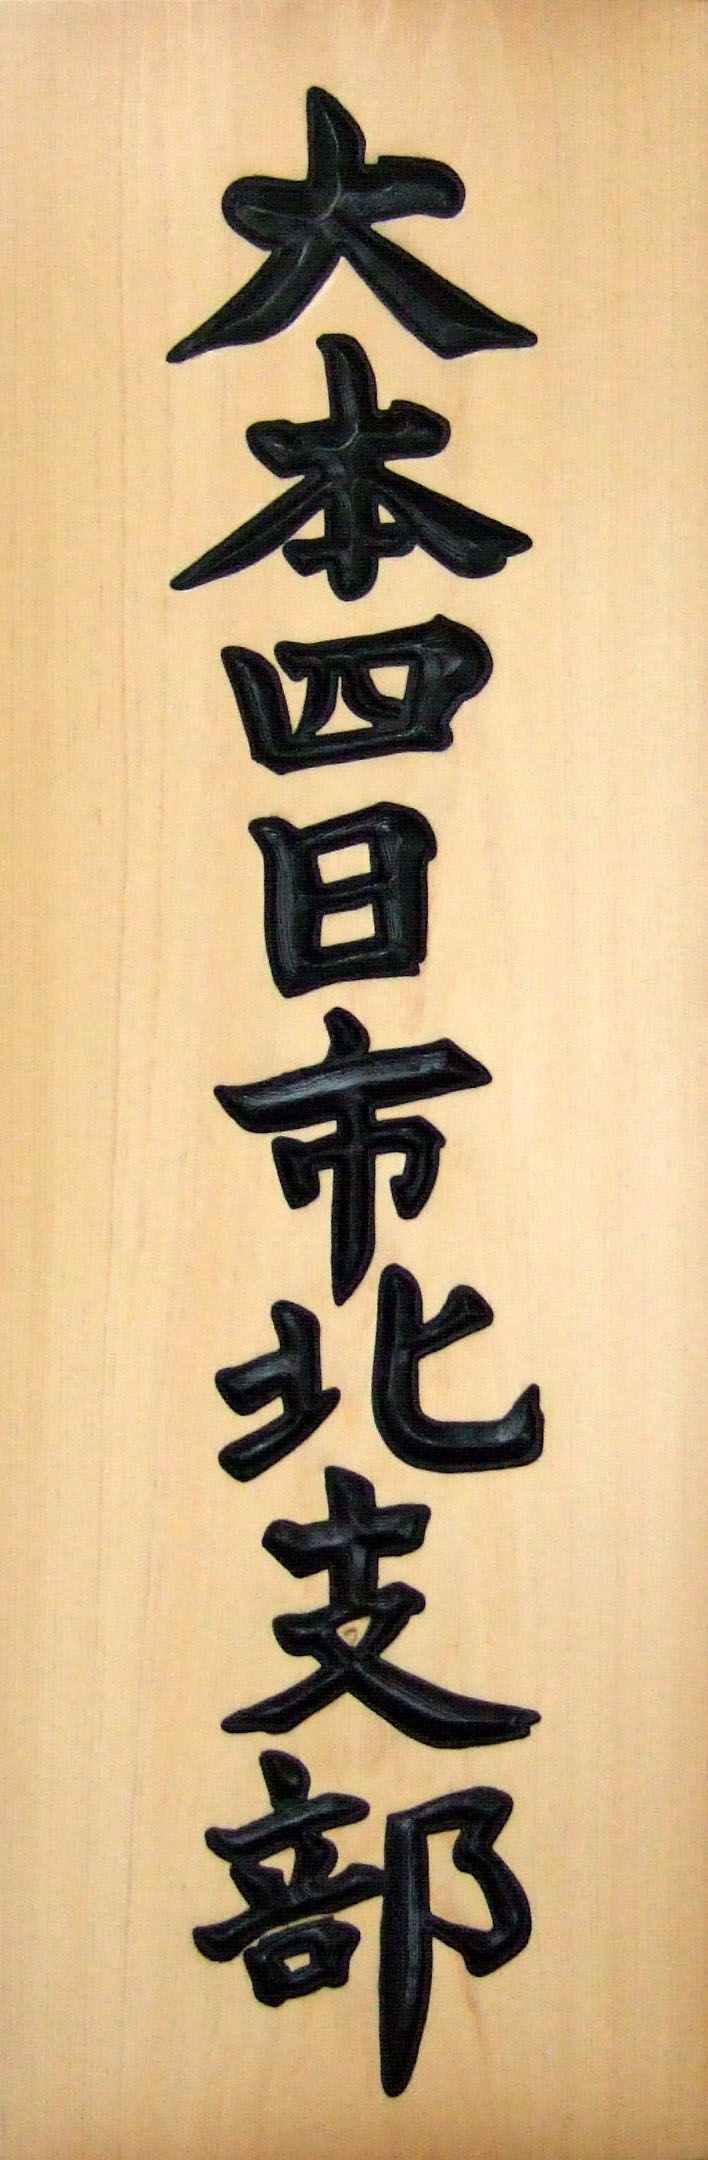 大本四日市北支部